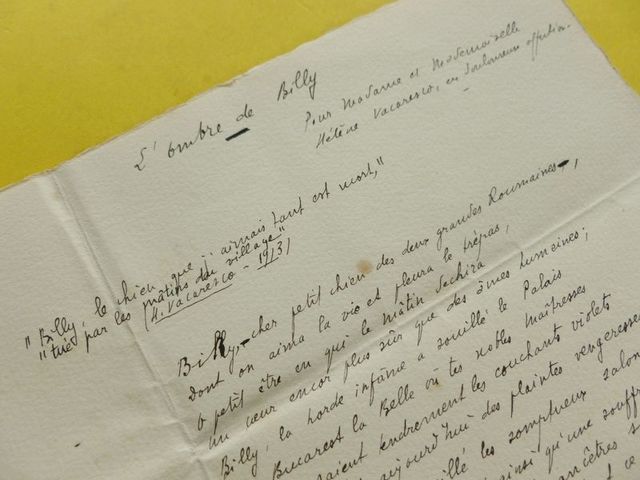 L'ombre de Billy
Pour Madame et Mademoiselle
Hélène Vacaresco, en douloureuse affection.
"Billy, le chien que j'aimais tant est mort,"
"tué par les mâtins du village"
(H. Vacaresco - 1913)
Billy, cher petit chien des deux grandes Roumaines,
dont on aima la vie et pleura le trépas,
O petit être en qui le mâtin déchira
Un cœur encor plus sûr que des âmes humaines;
Billy, la horde infâme a souillé le Palais
Bucarest la Belle où tes nobles maîtresses
tendrement les couchants violets
aujourd'hui des plaintes vengeresses
les somptueux salons
ainsi qu'une
ancêtres